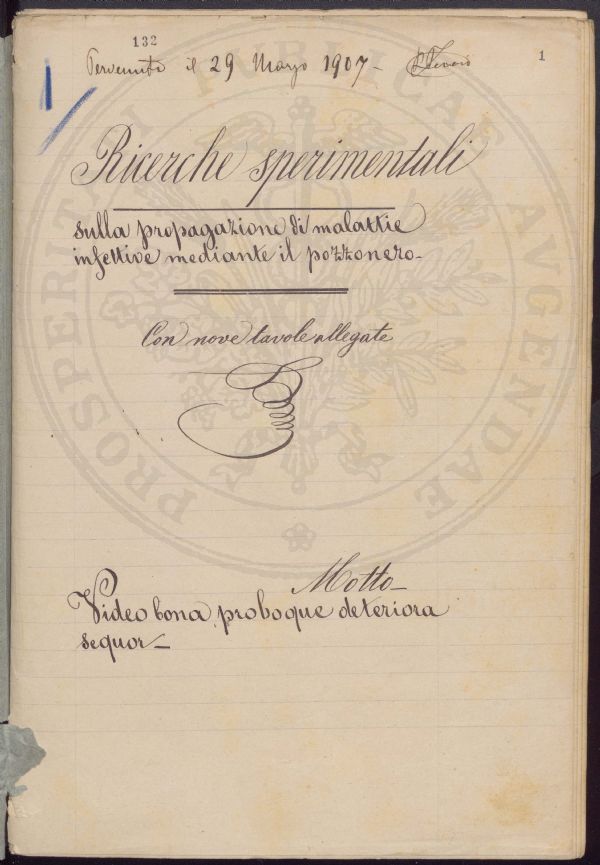 132
Pervenuta il 29 Marzo 1907 -
1
Ricerche sperimentali
sulla propagazione di malattie
infettive mediante il pozzonero -
Con nove tavole allegate
Motto -
Video bona proboque deteriora
sequor -
PROSPERITATI PUBLICAE AVGENDAE